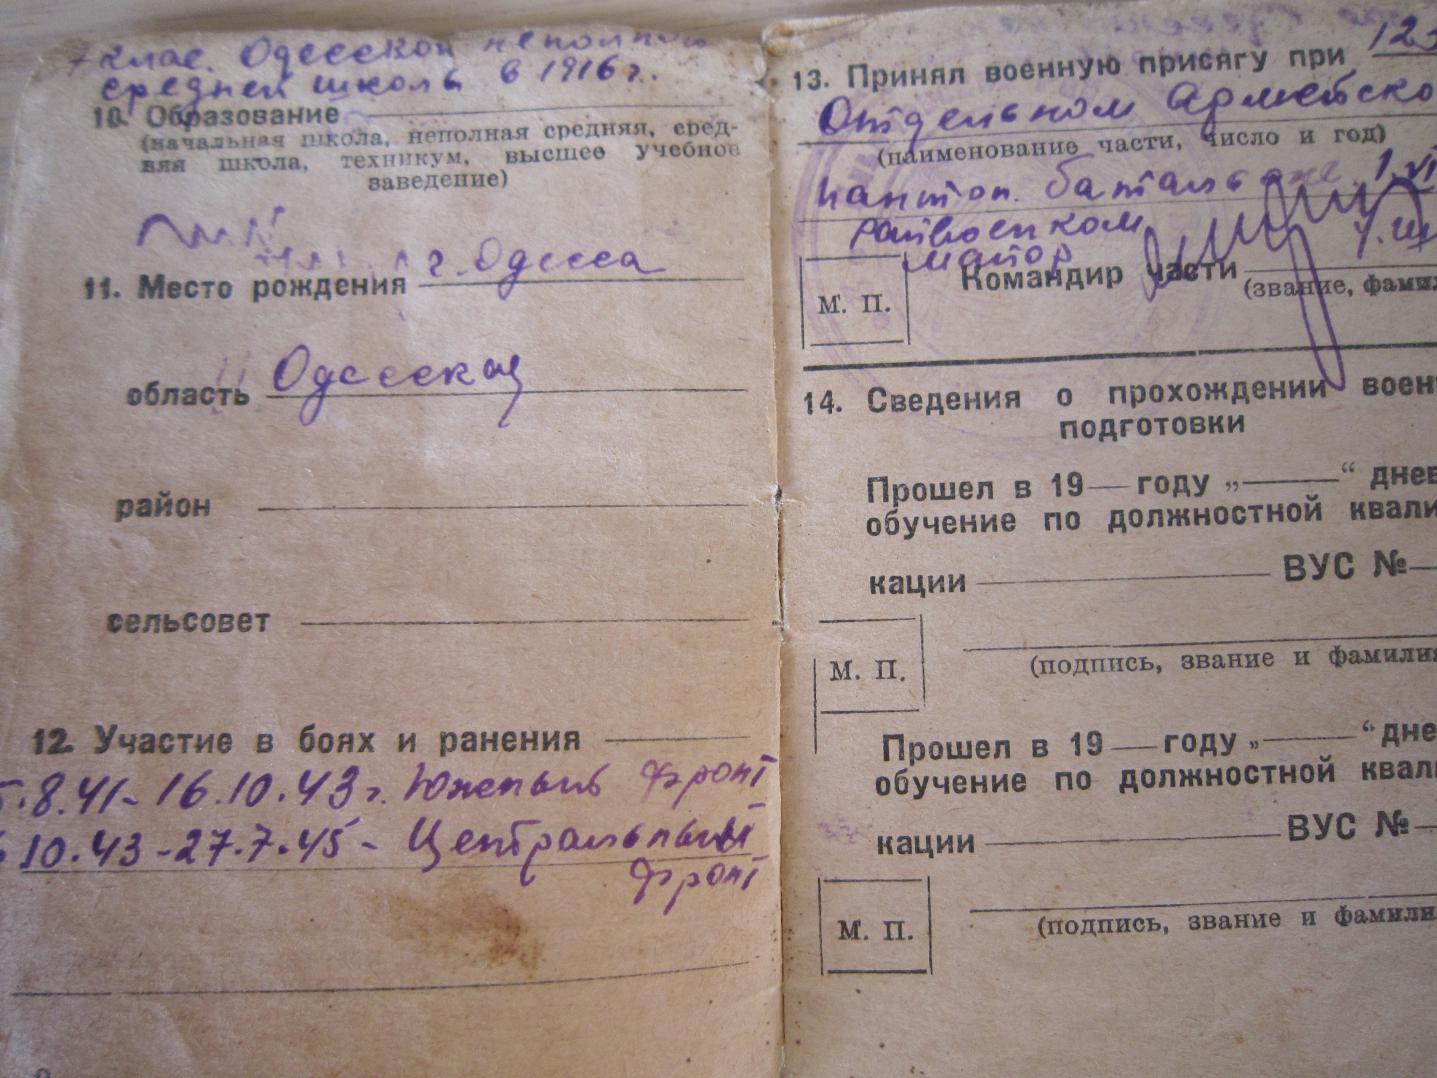 7 клас. Одесской неполной
средней школы в 1916 г.
10. Образование
(начальная школа, неполная средняя, сред-
няя школа, техникум, высшее учебное
заведение)
11. Место рождения г. Одесса
область Одесская
район
сельсовет
12. Участие в боях и ранения
.8.41 - 16.10.43 г. Южный фронт
10.43 - 27.7.45 - Центральный
фронт
13. Принял военную присягу при
Отдельном Армейско
(наименование части, число и год)
батальоне
Райвоенком
майор
Командир части
М. П.
(звание, фамил
14. Сведения о прохождении воен
подготовки
Прошел в 19 — году „ — “ днев
обучение по должностной квали
кации ВУС №
М. П.
(подпись, звание и фамилия
Прошел в 19 — году „ — “ дне
обучение по должностной квали
кации ВУС №
М. П.
(подпись, звание и фамили